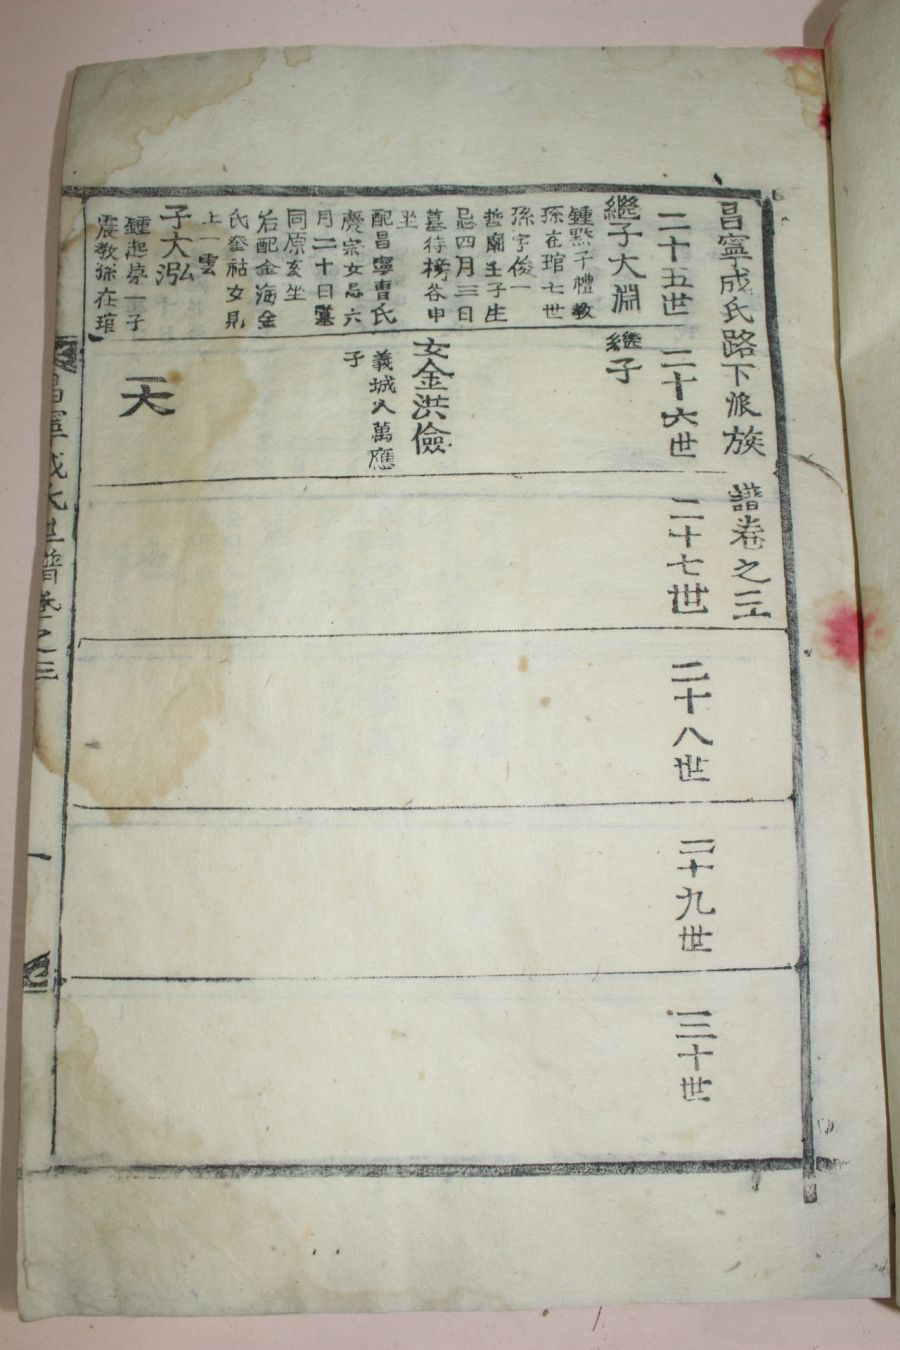 昌寧成氏路下派族譜卷之三
二十五世
二十六世
二十七世
二十八世
二十九世
三十世
繼子大淵
鍾㸃子禮教
孫在琯七世
孫字俊一
哲廟壬子生
忌四月三日
墓待榜谷申
坐
配昌寧曺氏
慶宗女忌六
月二十日墓
同原亥坐
后配金海金
氏奎祜女見
上一雲
子大泓
鍾起第一子
震教孫在琯
繼子
女金洪儉
義城人萬應
子
一天
昌寧成氏世譜卷之三
一